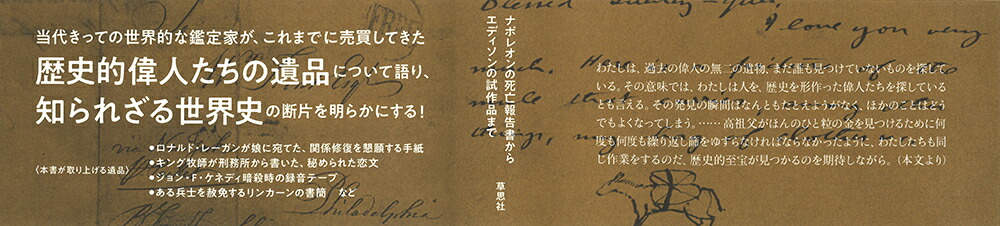 当代きっての世界的な鑑定家が、これまでに売買してきた
歴史的偉人たちの遺品について語り、
知られざる世界史の断片を明らかにする!
〈本書が取り上げる遺品〉
●ロナルド・レーガンが娘に宛てた、関係修復を懇願する手紙
●キング牧師が刑務所から書いた、秘められた恋文
●ジョン・F・ケネディ暗殺時の録音テープ
●ある兵士を赦免するリンカーンの書簡 など
Philadelphia
ナポレオンの死亡報告書から
エディソンの試作品まで
草思社
I love you very
much.
わたしは、過去の偉人の無二の遺物、まだ誰も見つけていないものを探して
いる。その意味では、わたしは人を、歴史を形作った偉人たちを探している
とも言える。その発見の瞬間はなんともたとえようがなく、ほかのことはどう
でもよくなってしまう。……高祖父がほんのひと粒の金を見つけるために何
度も何度も繰り返し篩をゆすらなければならなかったように、わたしたちも同
じ作業をするのだ、歴史的至宝が見つかるのを期待しながら。(本文より)